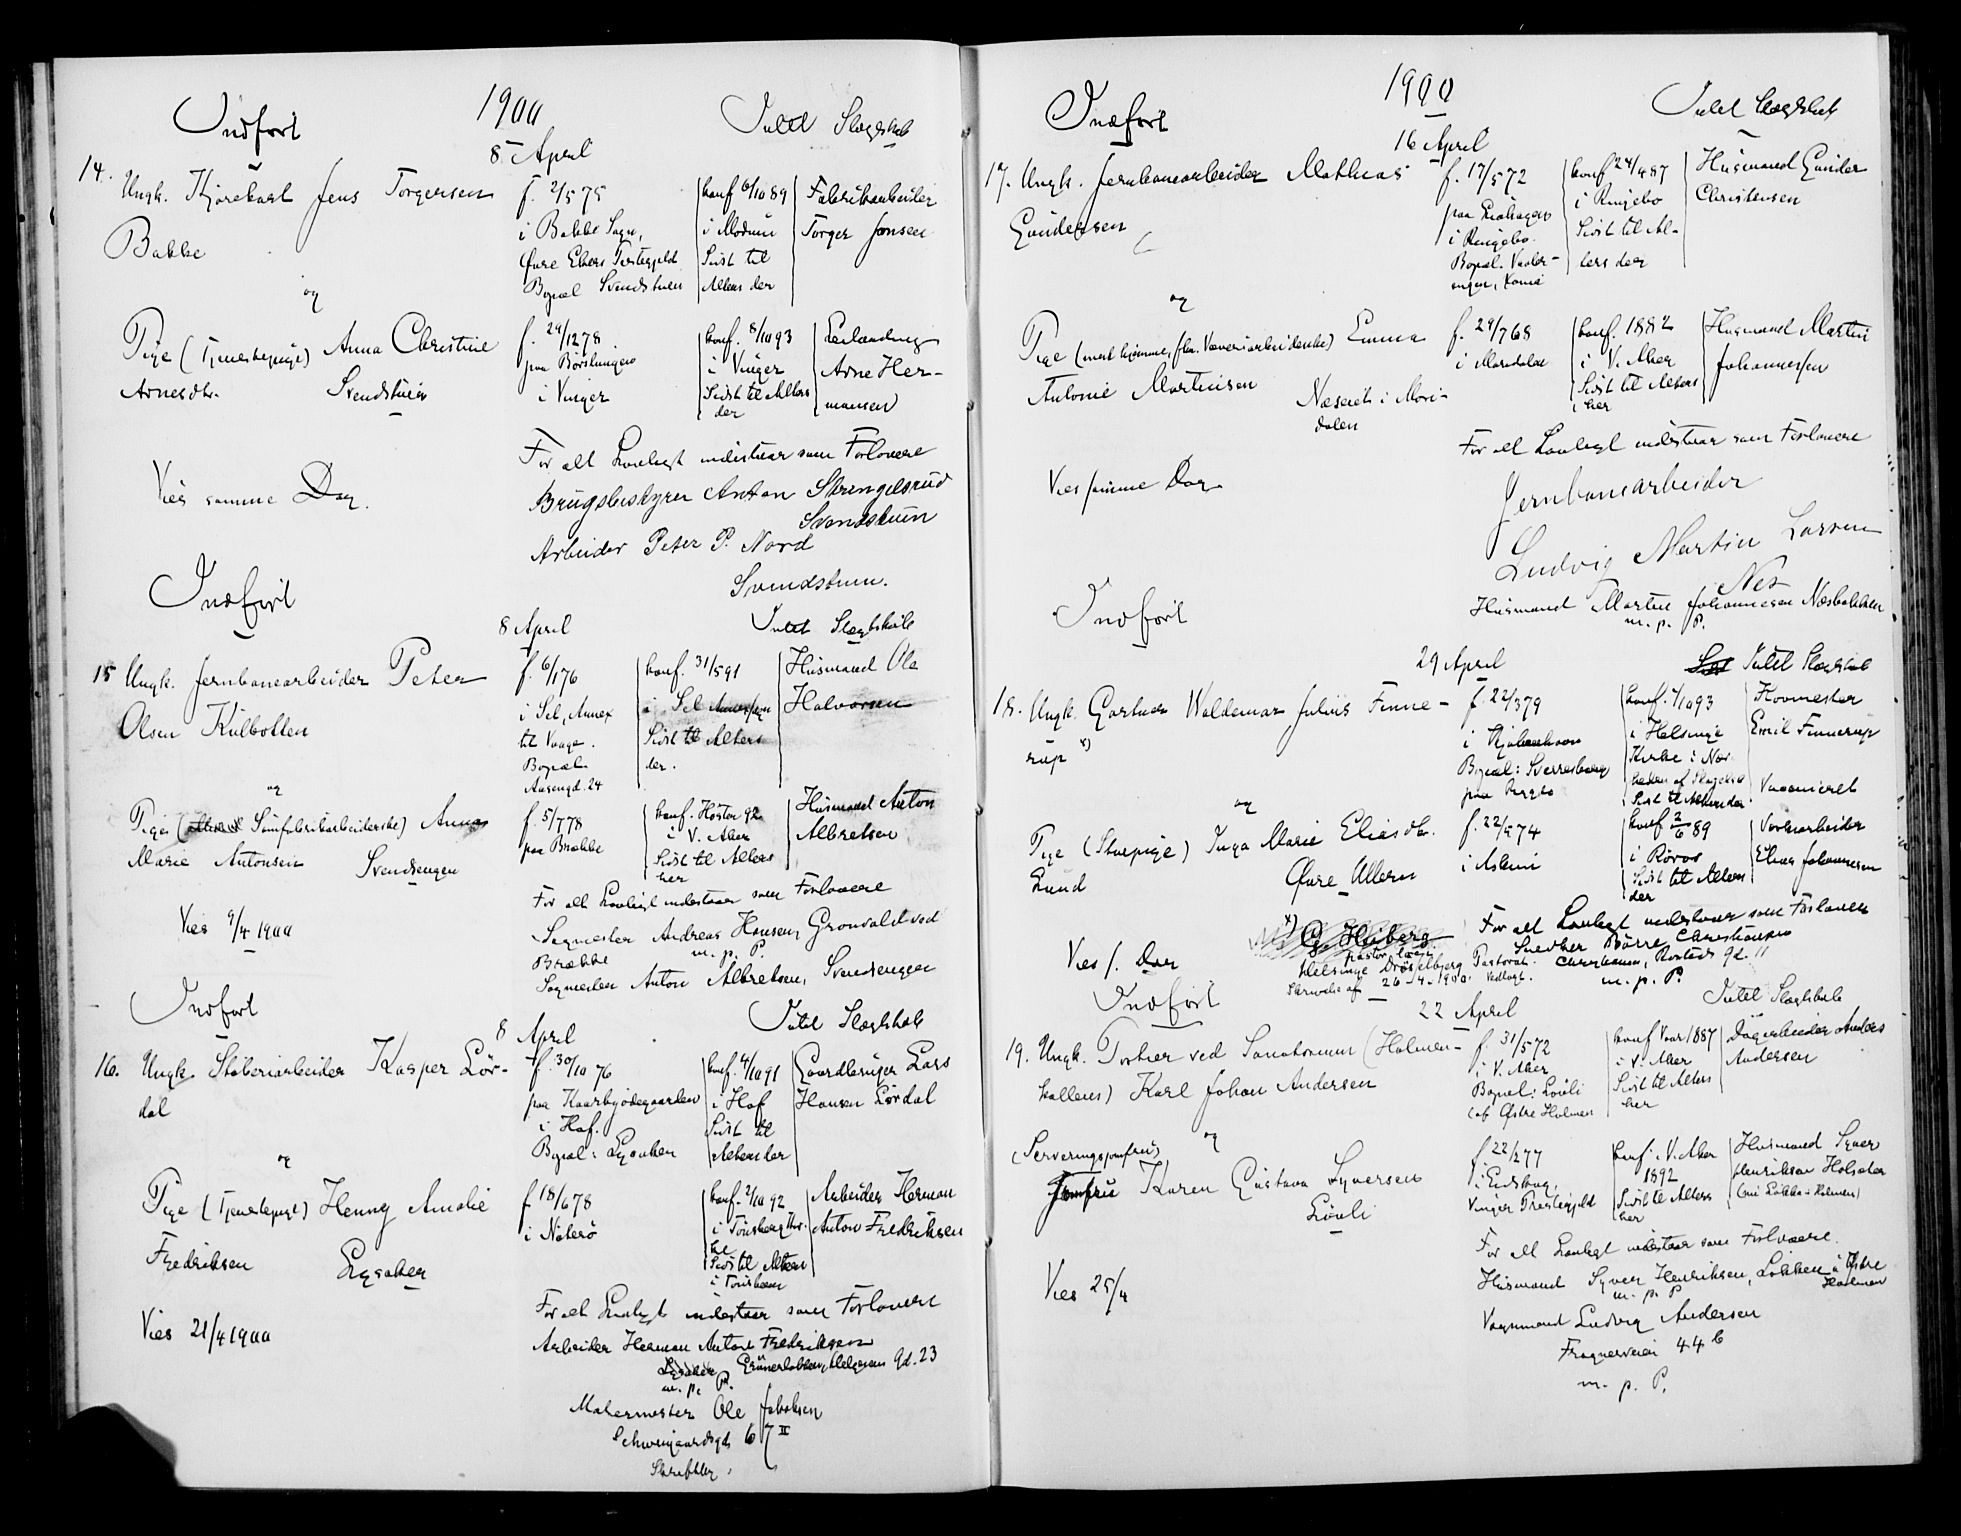 1900
Indført
Intet Slægtskab
8 April
14. Ungk. Kjørekarl Jens Torgersen
Bakke
f. 2/5 75
i Bakke Sogn,
Øvre Ekers Præstegjeld
Bopæl Svendstuen
konf 6/10 89
i Modum
Sidst til
Alters der
Fabrikarbeider
Torger Jonsen
og
Pige (Tjenestepige) Anna Christine
Arnesdtr. Svendstuen
f. 29/12 78
paa Børstingen
i Vinger
konf. 8/10 93
i Vinger
Sidst til Alters
der
Leilænding
Arne Her-
mansen
Vies samme Dag.
For alt Lovligt indestaar som Forlovere
Brugsbestyrer Anton Strengelsrud
Svendstuen
Arbeider Peter P. Nord
Svendstuen.
Indført
8 April
Intet Slægtskab
15 Ungk. Jernbanearbeider Peter
Olsen Kulbotten
f. 6/1 76
i Sel, Annex
til Vaage.
Bopæl
Aasengd. 24
konf. 31/5 91
i Sel
Sidst til Alters
der.
Husmand Ole
Halvorsen
og
Pige (Sømfabrikarbeiderske) Anna
Marie Antonsen Svendsengen
f. 5/7 78
paa Brække
konf. Høsten 92
i V. Aker
Sidst til Alters
her
Husmand Anton
Albretsen
Vies 9/4 1900
For alt Lovligt indestaar som Forlovere
Sagmester Andreas Hansen, Grønvold ved
Brække m. p. P.
Sagmester Anton Albretsen, Svendsengen
Indført
8 April
Intet Slægtskab
16. Ungk. Støberiarbeider Kasper Lør-
dal
f. 30/10 76
paa Kaarbyødegaarden
i Hof.
Bopæl: Lysaker
konf. 4/10 91
i Hof
Sidst til
Alters der
Gaardbruger Lars
Hansen Lørdal
og
Pige (Tjenestepige) Henny Amalie
Fredriksen Lysaker
f 18/6 78
i Nøterø
konf. 2/10 92
i Tønsberg Kir-
ke
Sidst til Alters
i Tønsberg
Arbeider Herman
Anton Fredriksen
Vies 21/4 1900
For alt Lovligt indestaar som Forlovere
Arbeider Herman Anton Fredriksen
Lysaker Grünerløkken, Helgesens gd. 23
m. p. P.
Malermester Ole Jakobsen
Schweigaardsgd 67 II
Skriftlig.
1900
Indført
Intet Slægtskab
16 April
17. Ungk. Jernbanearbeider Mathias
Gundersen
f. 17/5 72
i Ringebo.
Bopæl. Vaaler-
engen, Kania
konf 24/4 87
i Ringebo
Sidst til Al-
ters der
Husmand Gunder
Christensen
og
Pige (med hjemme, fhv. Væveriarbeiderske) Emma
Antonie Martinsen Næseiet i Mari-
dalen
f. 29/7 68
i Maridalen
konf. 1882
i V. Aker
Sidst til Alters
her
Husmand Martin
Johannessen
Vies samme Dag
For alt Lovligt indestaar som Forlovere
Jernbanearbeider
Ludvig Martin Larsen
Nes
Husmand Martin Johannesen Næsbakken
m. p. P.
Indført
29 April
Intet Slægtskab
18. Ungk. Gartner Waldemar Julius Finne-
rup x)
f. 22/3 79
i Kjøbenhavn
Bopæl: Sverresborg
paa Bygdø
konf. 1/10 93
i Helsinge
Kirke i Nær-
heden af Slagelse
Sidst til Alters der
Hovmester
Emil Finnerup
Vaccineret
og
Pige (Stuepige) Inga Marie Eliasdtr.
Lund Øvre Ullern
f. 22/9 74
i Askim
konf 2/6 89
i Røros
Sidst til Alters
der
Værkarbeider
Elias Johannesen
Vies s. Dag
x)
Helsinge Drøsselbjerg Pastorat.
Skrivelse af 26-4-1900. Vedlagt.
For alt Lovligt indestaar som Forlovere
Snedker Børre Christiansen
m. p. P.
Indført
22 April
Intet Slægtskab
19. Ungk. Portier ved Sanatorium (Holmen-
kollens) Karl Johan Andersen
f. 31/5 72
i V. Aker
Bopæl: Løvli
af Østre Holmen
konf Vaar 1887
i V. Aker
Sidst til Alters
her
Dagarbeider Anders
Andersen
og
(Serveringsjomfru)
Jomfru Karen Gustava Syversen
Løvli
f 22/2 77
i Eidskog,
Vinger Præstegjeld
konf. i V. Aker
1892
Sidst til Alters
her
Husmand Syver
Henriksen
Vies 25/4
For alt Lovligt indestaar som Forlovere.
Husmand Syver Henriksen, Løkken u Østre
Holmen
m. p. P
Vognmand Ludvig Andersen
Frognerveien 44 b
m. p. P.